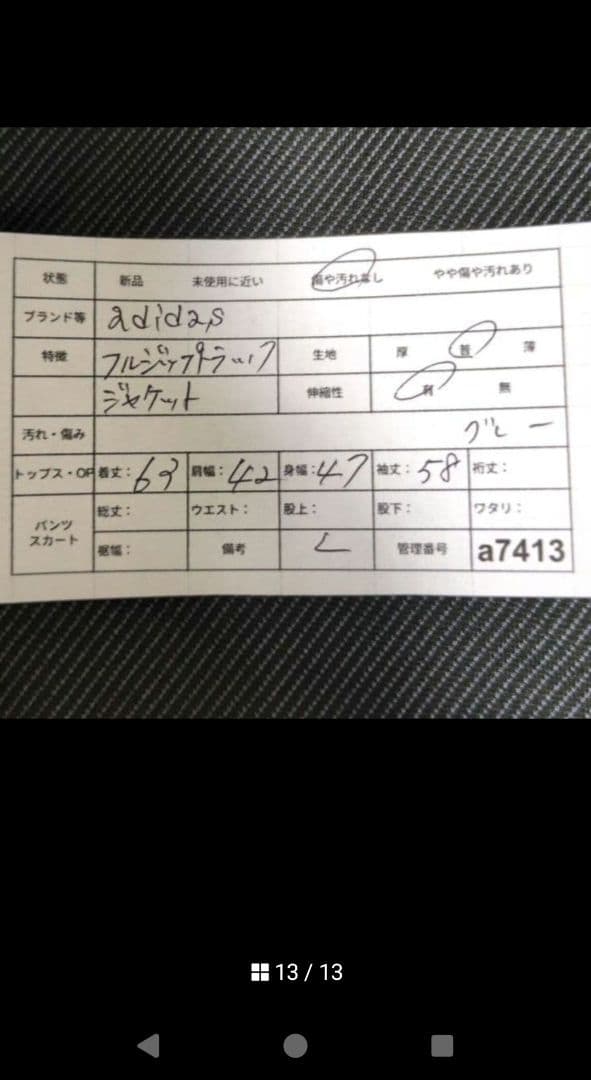 状態 新品 未使用に近い 傷や汚れなし やや傷や汚れあり
ブランド等 adidas
特徴 フルジップトラック 生地 厚 普 薄
ジャケット 伸縮性 有 無
汚れ・傷み グレー
トップス・OP 着丈：63 肩幅：42 身幅：47 袖丈：58 裄丈：
パンツ スカート 総丈： ウエスト： 股上： 股下： ワタリ：
裾幅： 備考 L 管理番号 a7413
13 / 13